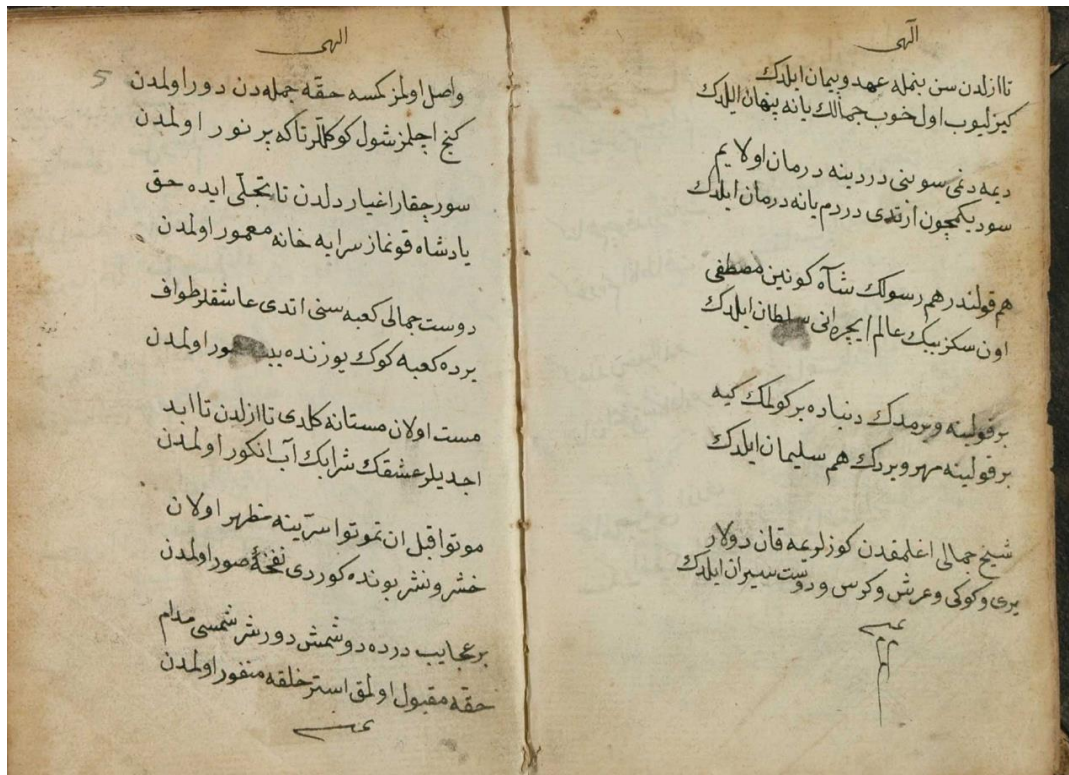 الٓهی
تا ازلدن سن بنمله عهد و پیمان ایلدك
کیزلیوب اول خوب جمالك یانه پنهان ایلدك
دیمه دڭمی سو بنی دردینه درمان اولایم
سودیکمچون ارتدی دردم یانه درمان ایلدك
هم قولندر هم رسولك شاه کونین مصطفی
اون سکز بیك عالم ایچره انی سلطان ایلدك
بر قولینه ویرمدك دنیاده بر کوملك کیه
بر قولینه مهر ویردك هم سلیمان ایلدك
شیخ جمالی اغلمقدن کوزلریمه قان دولار
یری و کوکی و عرش و کرس و دوست سیران ایلدك
الهی
5
واصل اولمز کمسه حقّه جمله دن دور اولمدن
کنج اچلمز شول کوکلّرتاکه پر نور اولمدن
سور چقار اغیار دلدن تا تجلّی ایده حق
پادشاه قونماز سرایه خانه معمور اولمدن
دوست جمالی کعبه سنی اتدی عاشقلر طواف
یرده کعبه کوك یوزنده اولمدن
مست اولان مستانه کلدی تا ازلدن تا ابد
اجدیلر عشقك شرابك آب انکور اولمدن
موتوا قبل ان تموتوا سرّینه مظهر اولان
حشر و نشر بونده کوردی نفخۀ صور اولمدن
بر عجایب درده دوشمش دورشر شمسی مدام
حقّه مقبول اولمق استر خلقه منفور اولمدن